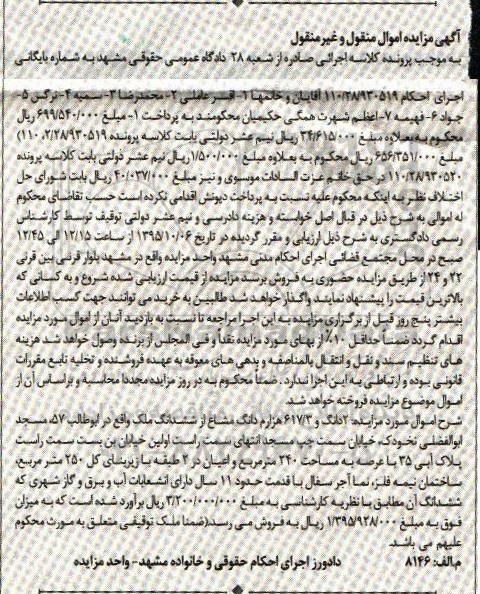 آگهی مزایده اموال منقول و غیر منقول
به موجب پرونده کلاسه اجرائی صادره از شعبه ۲۸ دادگاه عمومی حقوقی مشهد به شماره بایگانی
اجرای احکام ۱۱۰/۲۸/۹۳۰۵۱۹ آقایان و خانمها ۱- اقــر عاملی ۲- محمدرضا ۳- سمیه ۴- نرگس ۵-
جواد ۶- فهیمه ۷- اعظم شهرت همگی حکیمیان محکومند به پرداخت ۱- مبلغ ۶۹۹/۵۴۰/۰۰۰ ریال
محکوم به بعلاوه مبلغ ۳۴/۶۱۵/۰۰۰ ریال نیم عشر دولتی بابت کلاسه پرونده ۱۱۰/۲/۲۸/۹۳۰۵۱۹)
مبلغ ۶۵۶/۳۵۱/۰۰۰ ریال محکوم به بعلاوه مبلغ ۱/۵۰۰/۰۰۰ ریال نیم عشر دولتی بابت کلاسه پرونده
۱۱۰/۲۸/۹۳۰۵۲۰ در حق خانم عزت السادات موسوی و نیز مبلغ ۴۰/۰۳۷/۰۰۰ ریال بابت شورای حل
اختلاف نظر به اینکه محکوم علیه نسبت به پرداخت دیونش اقدامی نکرده است حسب تقاضای محکوم
له اموالی به شرح ذیل در قبال اصل خواسته و هزینه دادرسی و نیم عشر دولتی توقیف توسط کارشناس
رسمی دادگستری به شرح ذیل ارزیابی و مقرر گردیده در تاریخ ۱۳۹۵/۱۰/۰۶ از ساعت ۱۲/۱۵ الی ۱۲/۴۵
صبح در محل مجتمع قضائی اجرای احکام مدنی مشهد واحد مزایده واقع در مشهد بلوار قرنی بین قرنی
۲۲ و ۲۴ از طریق مزایده حضوری به فروش برسد مزایده از قیمت ارزیابی شده شروع و به کسانی که
بالاترین قیمت را پیشنهاد نمایند واگذار خواهد شد طالبین به خرید می توانند جهت کسب اطلاعات
بیشتر پنج روز قبل از برگزاری مزایده به این اجرا مراجعه تا نسبت به بازدید آنان از اموال مورد مزایده
اقدام گردد ضمناً حداقل ۱۰٪ از بهای مورد مزایده نقداً و فی المجلس از برنده وصول خواهد شد هزینه
های تنظیم سند و نقل و انتقال بالمناصفه و بدهی های معوقه به عهده فروشنده و تخلیه تابع مقررات
قانونی بوده و ارتباطی به این اجرا ندارد . ضمناً محکوم به در روز مزایده مجدداً محاسبه و براساس آن از
اموال موضوع مزایده فروخته خواهد شد.
شرح اموال مورد مزایده: ۲دانگ و ۶۱۷/۳ هزارم دانگ مشاع از ششدانگ ملک واقع در ابوطالب ۵۷، مسجد
ابوالفضلی نخودک، خیابان سمت چپ مسجد انتهای سمت راست اولین خیابان بن بست سمت راست
پلاک آبی ۳۵ با عرصه به مساحت ۲۴۰ مترمربع و اعیان در ۲ طبقه با زیربنای کل ۲۵۰ متر مربع،
ساختمان نیمه فلز، نما آجر سفال با قدمت حدود ۱۱ سال دارای انشعابات آب و برق و گاز شهری که
ششدانگ آن مطابق با نظریه کارشناسی به مبلغ ۳/۲۰۰/۰۰۰/۰۰۰ ریال برآورد شده است که به میزان
فوق به مبلغ ۱/۳۹۵/۹۲۸/۰۰۰ ریال به فروش می رسد(ضمنا ملک توقیفی متعلق به مورث محکوم
علیهم می باشد.
م.الف: ۸۱۴۶ دادورز اجرای احکام حقوقی و خانواده مشهد- واحد مزایده